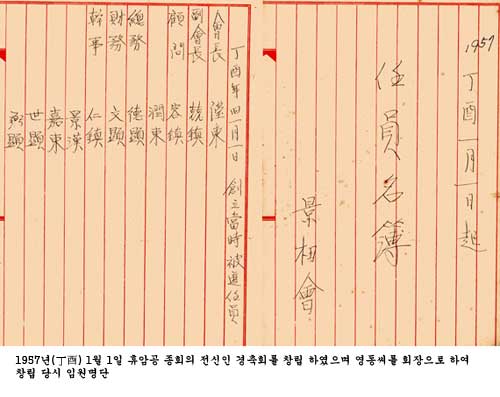 1957
丁酉一月一日起
任員名簿
景相會
丁酉年旧一月一日 創立當時被選任員
會長 瀅東
副會長 兢鎮
顧問 容鎮
潤東
總務 德顯
財務 文顯
幹事 仁鎮
景漢
嘉東
世顯
顯
1957년(丁酉) 1월 1일 휴암공 종회의 전신인 경축회를 창립 하였으며 영동씨를 회장으로 하여
창립 당시 임원명단